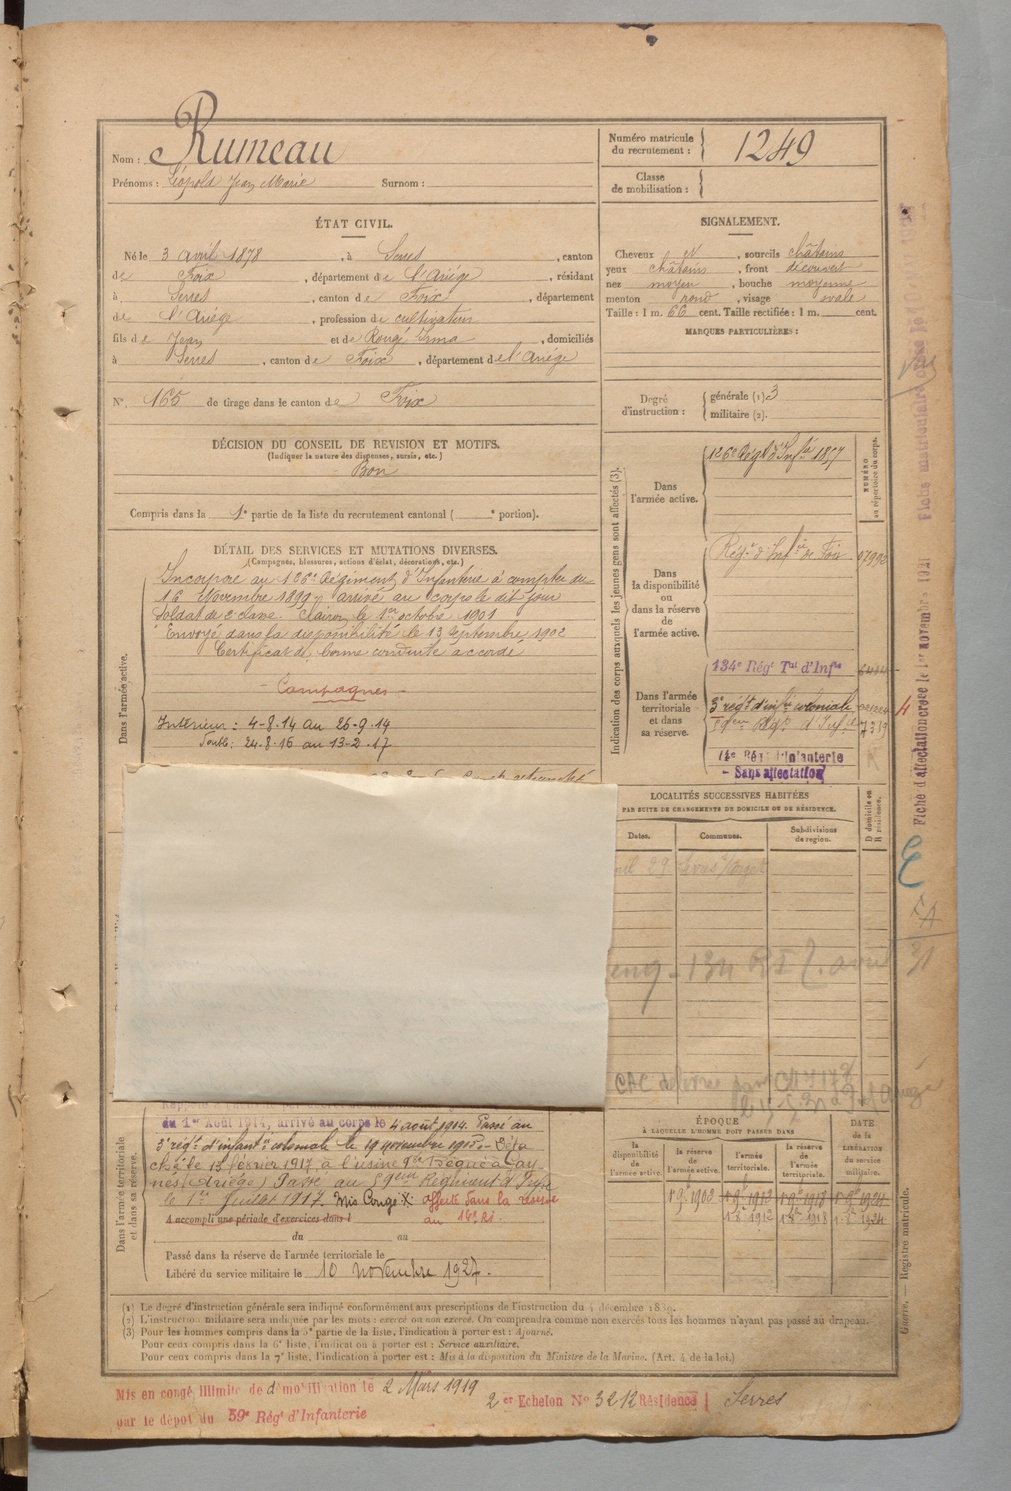 Nom : Rumeau
Prénoms : Léopold Jean Marie Surnom :
Numéro matricule du recrutement : 1249
Classe de mobilisation :
ÉTAT CIVIL.
Né le 3 avril 1878, à Serres, canton
de Foix, département de l'Ariège, résidant
à Serres, canton de Foix, département
de l'Ariège, profession de cultivateur
fils de Jean et de Rougé Irma, domiciliés
à Serres, canton de Foix, département de l'Ariège
N° 165 de tirage dans le canton de Foix
SIGNALEMENT.
Cheveux et, sourcils châtains
yeux châtains, front découvert
nez moyen, bouche moyenne
menton rond, visage ovale
Taille : 1 m. 66 cent. Taille rectifiée : 1 m. cent.
MARQUES PARTICULIÈRES :
Degré d'instruction : générale (1) 3
militaire (2).
DÉCISION DU CONSEIL DE REVISION ET MOTIFS.
(Indiquer la nature des dispenses, sursis, etc.)
Bon
Compris dans la 1e partie de la liste du recrutement cantonal ( e portion).
DÉTAIL DES SERVICES ET MUTATIONS DIVERSES.
(Campagnes, blessures, actions d'éclat, décorations, etc.)
Dans l'armée active.
Incorporé au 126e Régiment d'Infanterie à compter du
16 Novembre 1899, arrivé au corps le dit jour
Soldat de 2e classe. Clairon le 1er octobre 1901
Envoyé dans la disponibilité le 13 Septembre 1902
Certificat de bonne conduite accordé
- Campagnes -
Intérieur : 4-8-14 au 25-9-14
Double : 24-8-16 au 13-2-17
Indication des corps auxquels les jeunes gens sont affectés (3).
NUMÉRO au répertoire du corps.
Dans l'armée active.
126e Régt d'Infie
Dans la disponibilité ou dans la réserve de l'armée active.
Régt d'Infie de Foix
Dans l'armée territoriale et dans sa réserve.
134e Régt Tal d'Infie
3e régt d'infie coloniale
59eme Régt d'Infie
14e Régt d'Infanterie
- Sans affectation
LOCALITÉS SUCCESSIVES HABITÉES
PAR SUITE DE CHANGEMENTS DE DOMICILE OU DE RÉSIDENCE.
Dates. Communes. Subdivisions de région. D domicile ou R résidence.
29 Serres s/Arget
Dans l'armée territoriale et dans sa réserve.
du 1er Août 1914, arrivé au corps le 4 août 1914. Passé au
3e régt d'infantie coloniale le 19 novembre 1915.
le 13 février 1917, à l'usine
(Ariège) Passé au 59eme Régiment d'Infie
le 1er Juillet 1917. Mis Congé X. affecté dans la réserve
au 14e RI.
A accompli une période d'exercices dans l
du au
Passé dans la réserve de l'armée territoriale le
Libéré du service militaire le 10 novembre 1927.
ÉPOQUE
À LAQUELLE L'HOMME DOIT PASSER DANS
DATE de la LIBÉRATION du service militaire.
la disponibilité de l'armée active. la réserve de l'armée active. l'armée territoriale. la réserve de l'armée territoriale.
(1) Le degré d'instruction générale sera indiqué conformément aux prescriptions de l'instruction du 4 décembre 1889.
(2) L'instruction militaire sera indiquée par les mots : exercé ou non exercé. On comprendra comme non exercés tous les hommes n'ayant pas passé au drapeau.
(3) Pour les hommes compris dans la 5e partie de la liste, l'indication à porter est : Ajourné.
Pour ceux compris dans la 6e liste, l'indication à porter est : Service auxiliaire.
Pour ceux compris dans la 7e liste, l'indication à porter est : Mis à la disposition du Ministre de la Marine. (Art. 4 de la loi.)
Guerre. — Registre matricule.
Fiche d'affectation créée le 1er novembre 1921
Mis en congé illimité de démobilisation le 2 Mars 1919
par le dépôt du 59e Régt d'Infanterie
2er Echelon No 3212 Résidence Serres